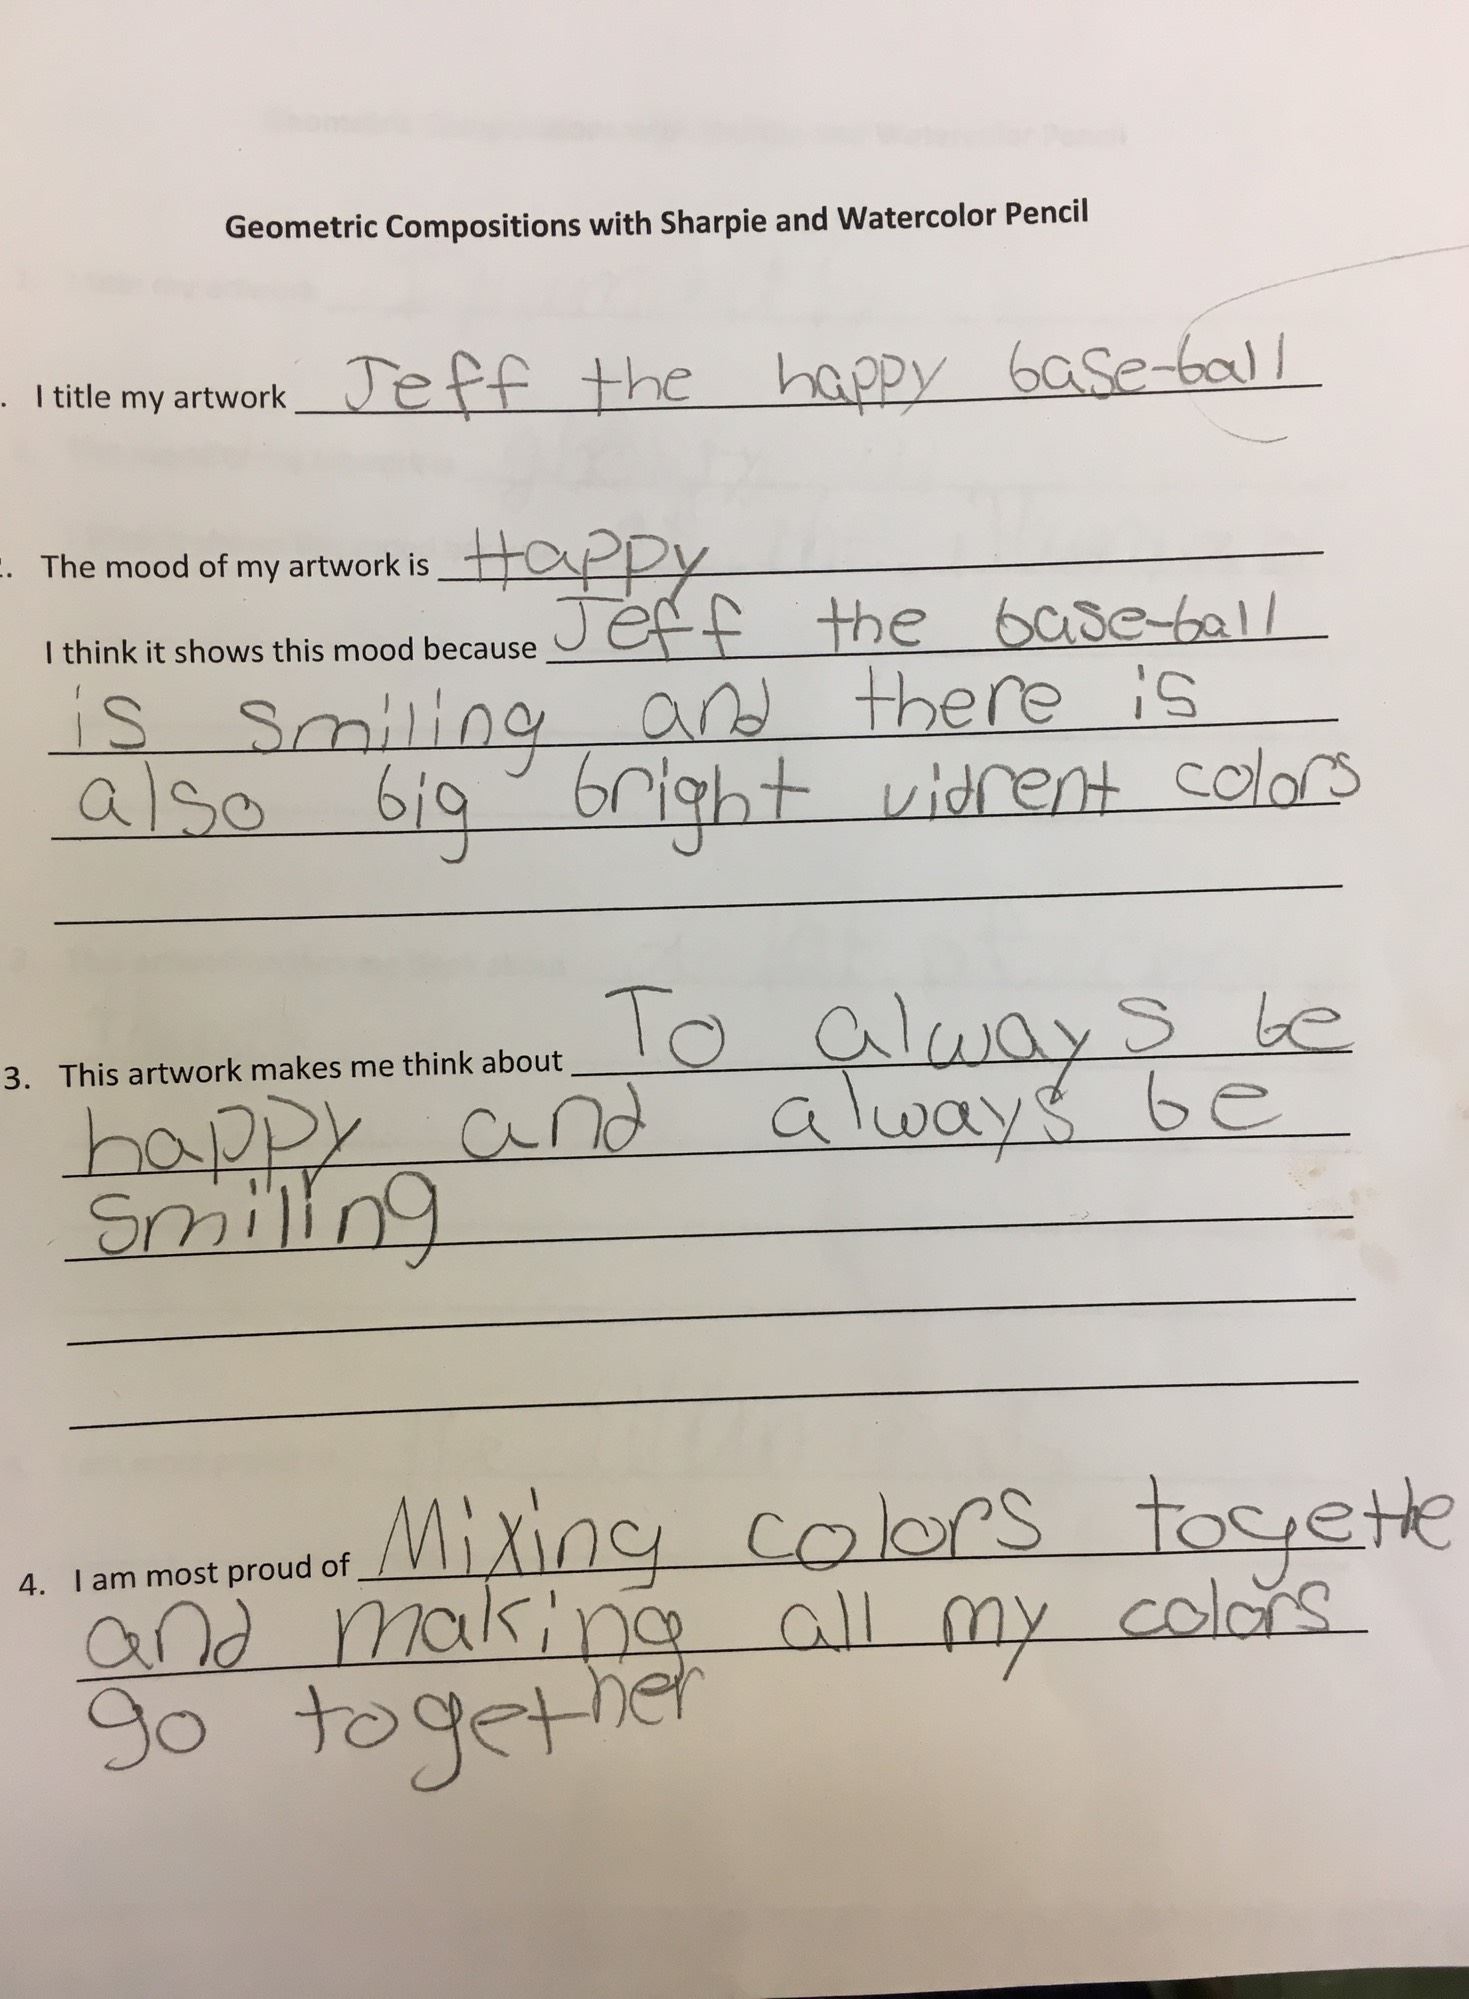 Geometric Compositions with Sharpie and Watercolor Pencil
. I title my artwork Jeff the happy base-ball
. The mood of my artwork is Happy
I think it shows this mood because Jeff the base-ball
is smiling and there is
also big bright vidrent colors
3. This artwork makes me think about To always be
happy and always be
smiling
4. I am most proud of Mixing colors togethe
and making all my colors
go together